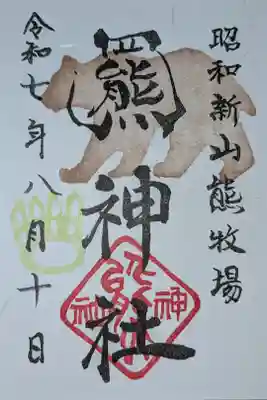 昭和新山熊牧場
羆神社
令和七年八月十日